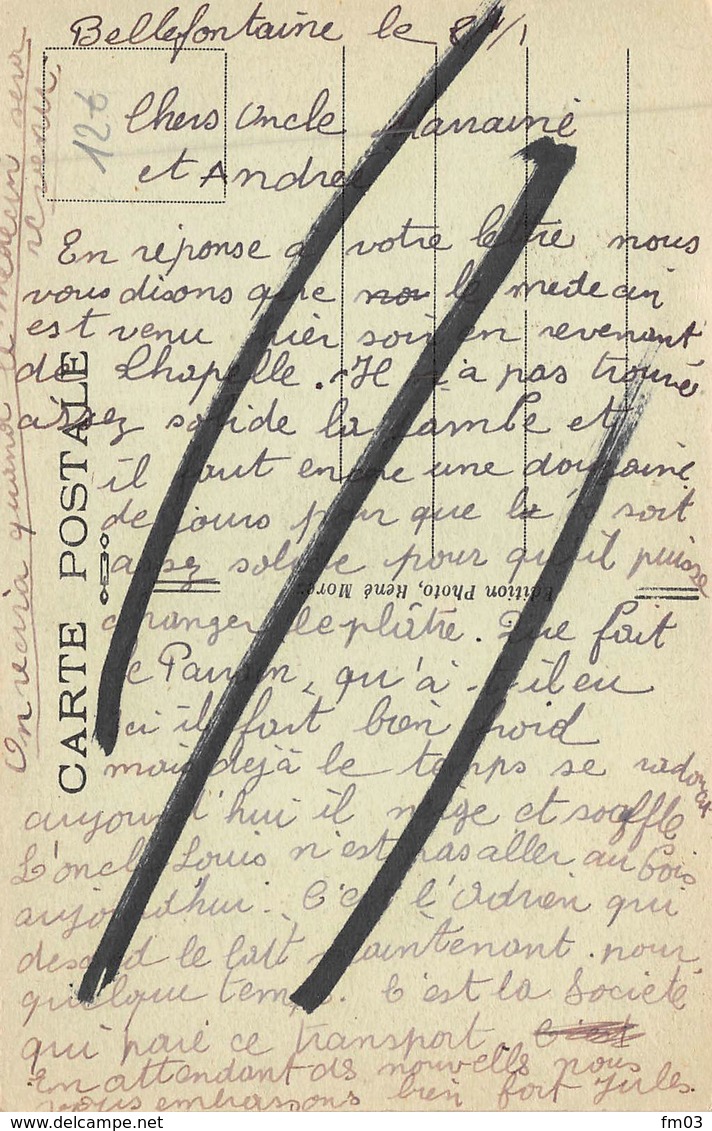 Bellefontaine le
126
Chers Oncle Marraine
et Andrée
En réponse a votre lettre nous
vous disons que nou le medecin
est venu hier soir en revenant
de Chapelle. Il n'a pas trouvé
assez solide la jambe et
il faut encore une douzaine
de jours pour que la soit
assez solide pour qu'il puisse
changer le plâtre. Que fait
le Parrain, qu'à-t-il eu
ici il fait bien froid
mais dejà le temps se radoucit
aujourd'hui il neige et souffle
L'oncle Louis n'est pas aller au bois
aujourd'hui. C'est l'Adrien qui
descend le lait maintenant pour
quelque temps. C'est la Société
qui paie ce transport. C'est
En attendant de nouvelles nous
vous embrassons bien fort Jules.
On recrira quand le médecin sera
revenu.
CARTE POSTALE
Edition Photo, René Morez
fm03